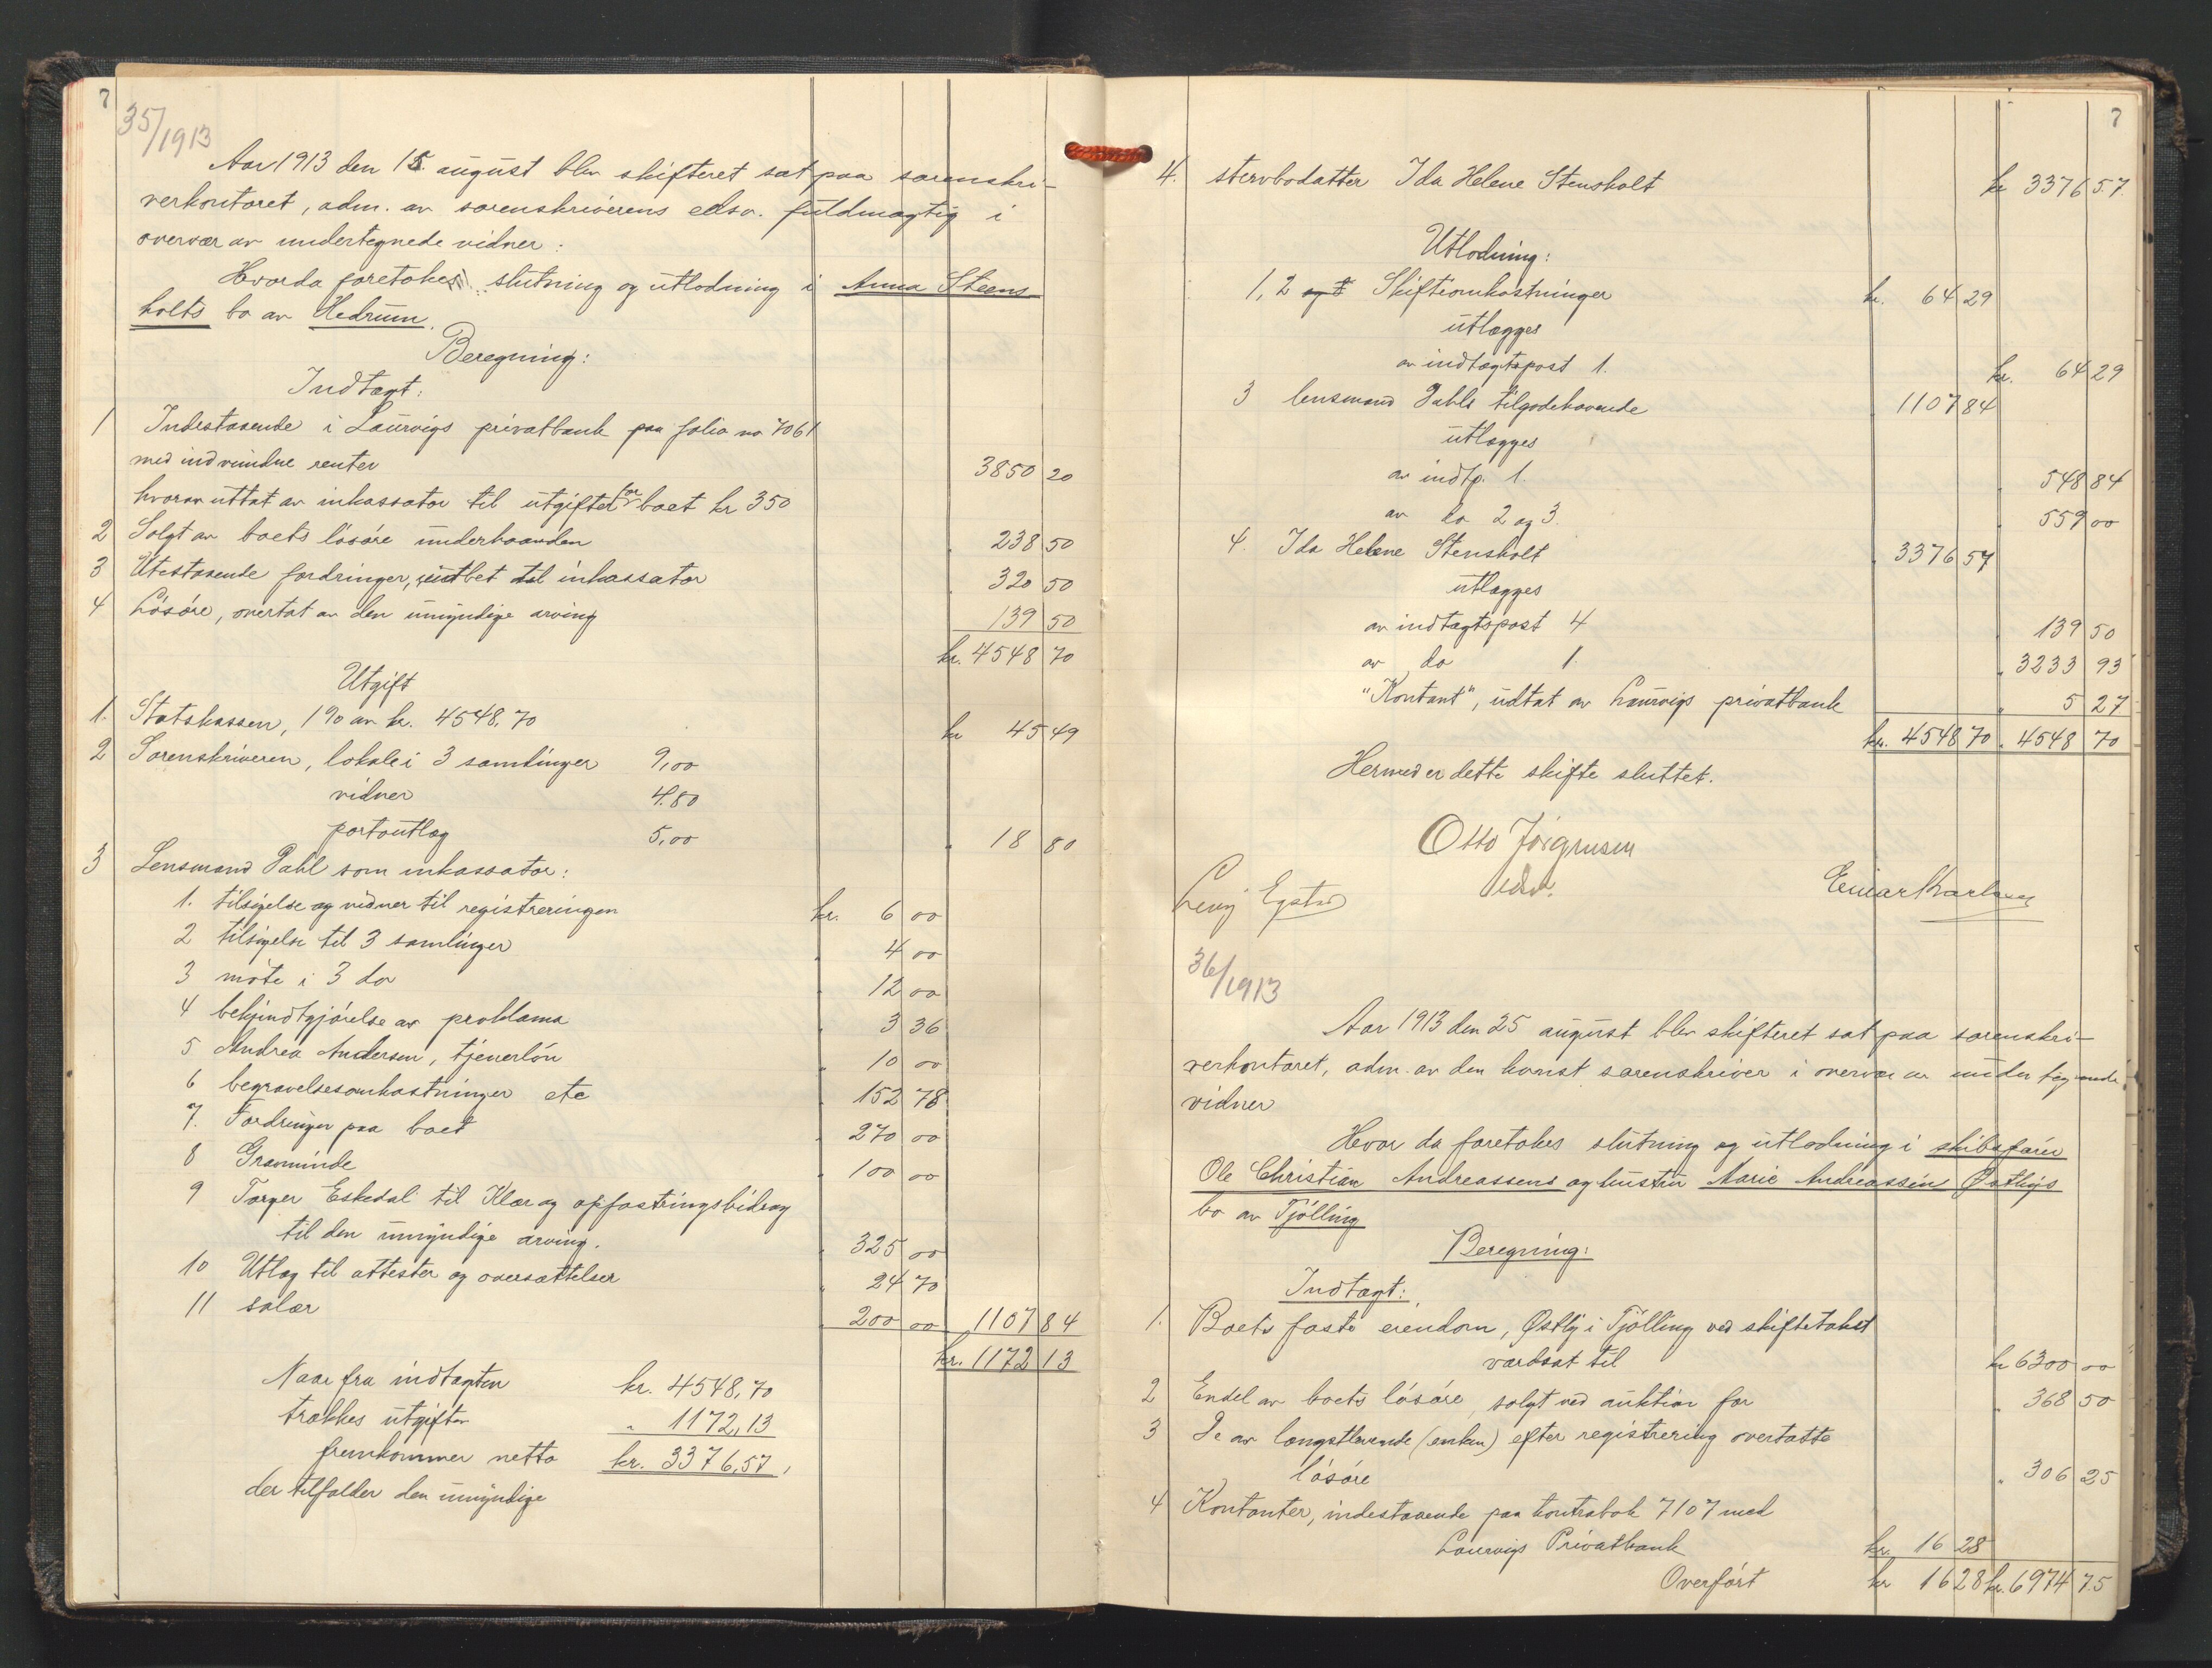 7
35/1913
Aar 1913 den 15. august blev skifteret sat paa sorenskri-
verkontoret, adm. av sorenskriverens edsv. fuldmægtig i
overvær av undertegnede vidner:
Hvorda foretokes slutning og utlodning i Anna Steens-
holts bo av Hedrum.
Beregning:
Indtægt:
1 Indestaaende i Laurvigs privatbank paa folio no 7061
med indvundne renter 3850 20
hvorav uttat av inkassator til utgifter for boet kr 350
2 Solgt av boets løsøre underhaanden " 238 50
3 Utestaaende fordringer, indbet til inkassator " 320 50
4 Løsøre, overtat av den umyndige arving " 139 50
kr. 4548 70
Utgift
1. Statskassen, 1% av kr. 4548,70 kr 45 49
2 Sorenskriveren, lokale i 3 samlinger 9,00
vidner 4.80
portoutlæg 5,00 " 18 80
3 Lensmand Dahl som inkassator:
1. tilsigelse og vidner til registreringen kr. 6 00
2 tilsigelse til 3 samlinger " 4 00
3 møte i 3 do " 12 00
4 bekjendtgjørelse av proklama " 3 36
5 Andrea Andersen, tjenerløn " 10 00
6 begravelsesomkostninger etc " 152 78
7. Fordringer paa boet " 270 00
8 Gravminde " 100 00
9 Torger Eskedal til Klær og opfostringsbidrag
til den umyndige arving. " 325 00
10 Utlæg til attester og oversættelser " 24 70
11 salær " 200 00 " 1107 84
kr. 1172 13
Naar fra indtægten kr. 4548,70
trækkes utgiften " 1172,13
fremkommer netto kr. 3376,57,
der tilfalder den umyndige
7
4. stervbodatter Ida Helene Stensholt kr 3376 57.
Utlodning:
1, 2 og 3 Skifteomkostninger kr. 64 29
utlægges
av indtægtspost 1. kr. 64 29
3 lensmand Dahls tilgodehavende " 1107 84
utlægges
av indtp. 1. " 548 84
av do 2 og 3. " 559 00
4. Ida Helene Stensholt " 3376 57
utlægges
av indtægtspost 4 " 139 50
av do 1. " 3233 93
"Kontant", udtat av Laurvigs privatbank " 5 27
kr. 4548 70 " 4548 70
Hermed er dette skifte sluttet.
Otto Jørgensen
edsv.
Einar Karlsen
36/1913
Aar 1913 den 25 august blev skifteret sat paa sorenskri-
verkontoret, adm. av den konst sorenskriver i overvær av undertegnede
vidner
Hvor da foretokes slutning og utlodning i skibsfører
Ole Christian Andreassens og hustru Marie Andreassen Østbys
bo av Tjølling
Beregning:
Indtægt:
1. Boets faste eiendom, Østby i Tjølling ved skiftetakst
værdsat til kr 6300 00
2 Endel av boets løsøre, solgt ved auktion for " 368 50
3 De av længstlevende (enken) efter registrering overtatte
løsøre " 306 25
4 Kontanter, indestaaende paa kontrabok 7107 med
Laurvigs Privatbank kr. 16 28
Overført kr 16 28 kr. 6974 75